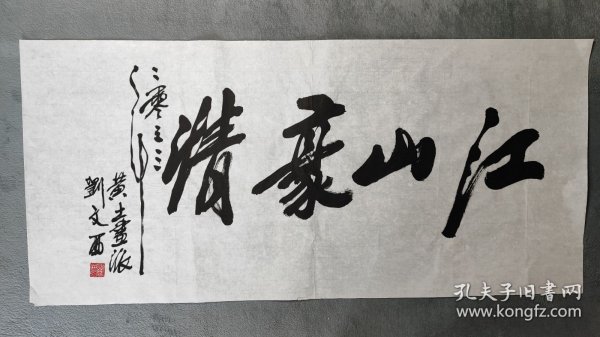 江山豪情
黄土畫派
劉文西
孔夫子旧书网
www.kongfz.com